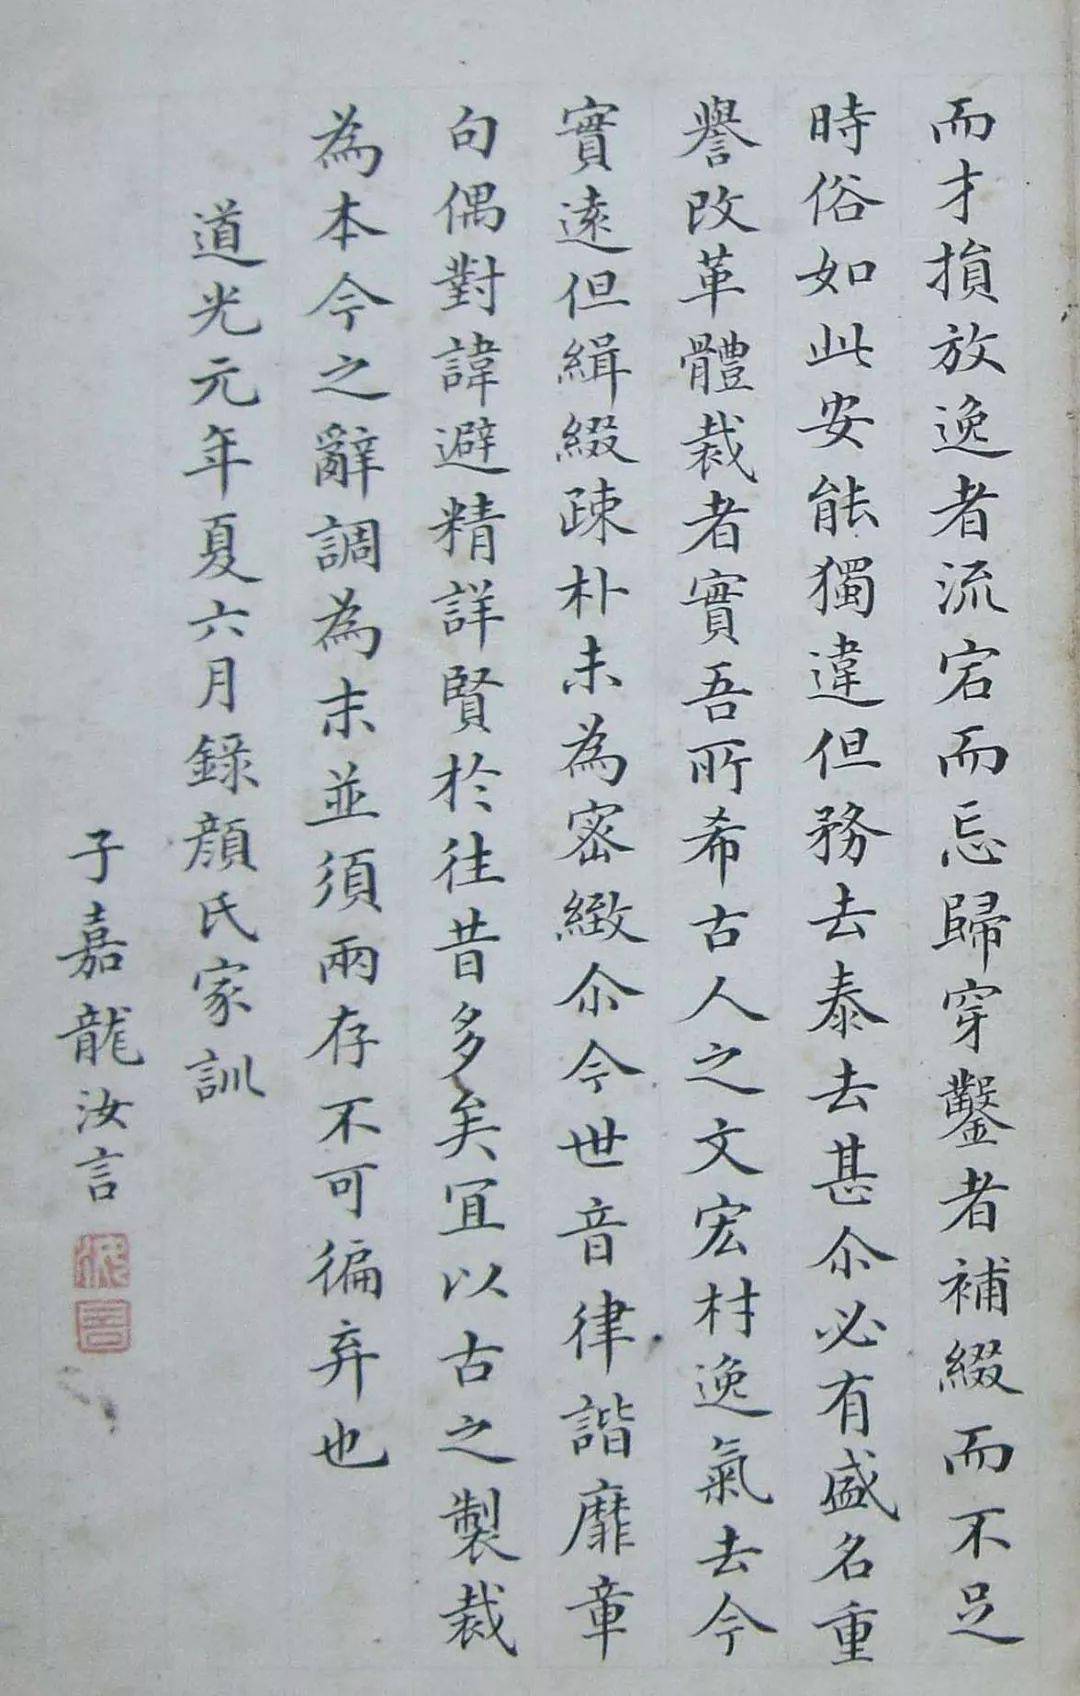 而才損放逸者流宕而忘歸穿鑿者補綴而不足
時俗如此安能獨違但務去泰去甚尒必有盛名重
譽改革體裁者實吾所希古人之文宏材逸氣去今
實遠但緝綴疎朴未為密緻尒今世音律諧靡章
句偶對諱避精詳賢於往昔多矣宜以古之製裁
為本今之辭調為末並須兩存不可徧弃也
道光元年夏六月錄顏氏家訓
子嘉龍汝言
汝言